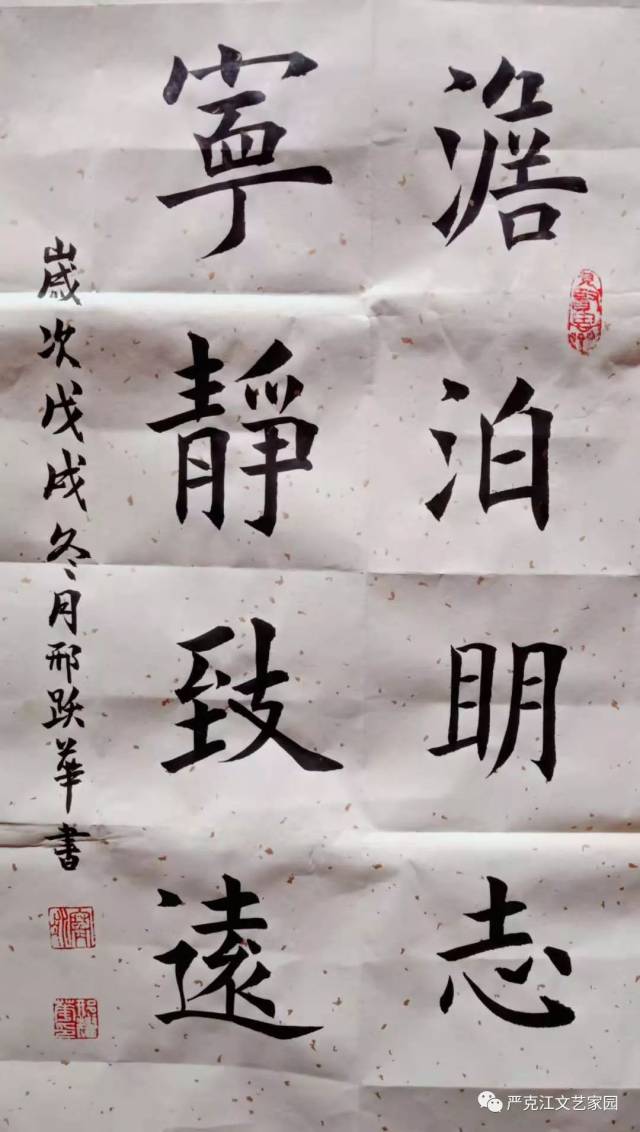 澹泊明志
寧靜致遠
歲次戊戌冬月邢跃華書
严克江文艺家园